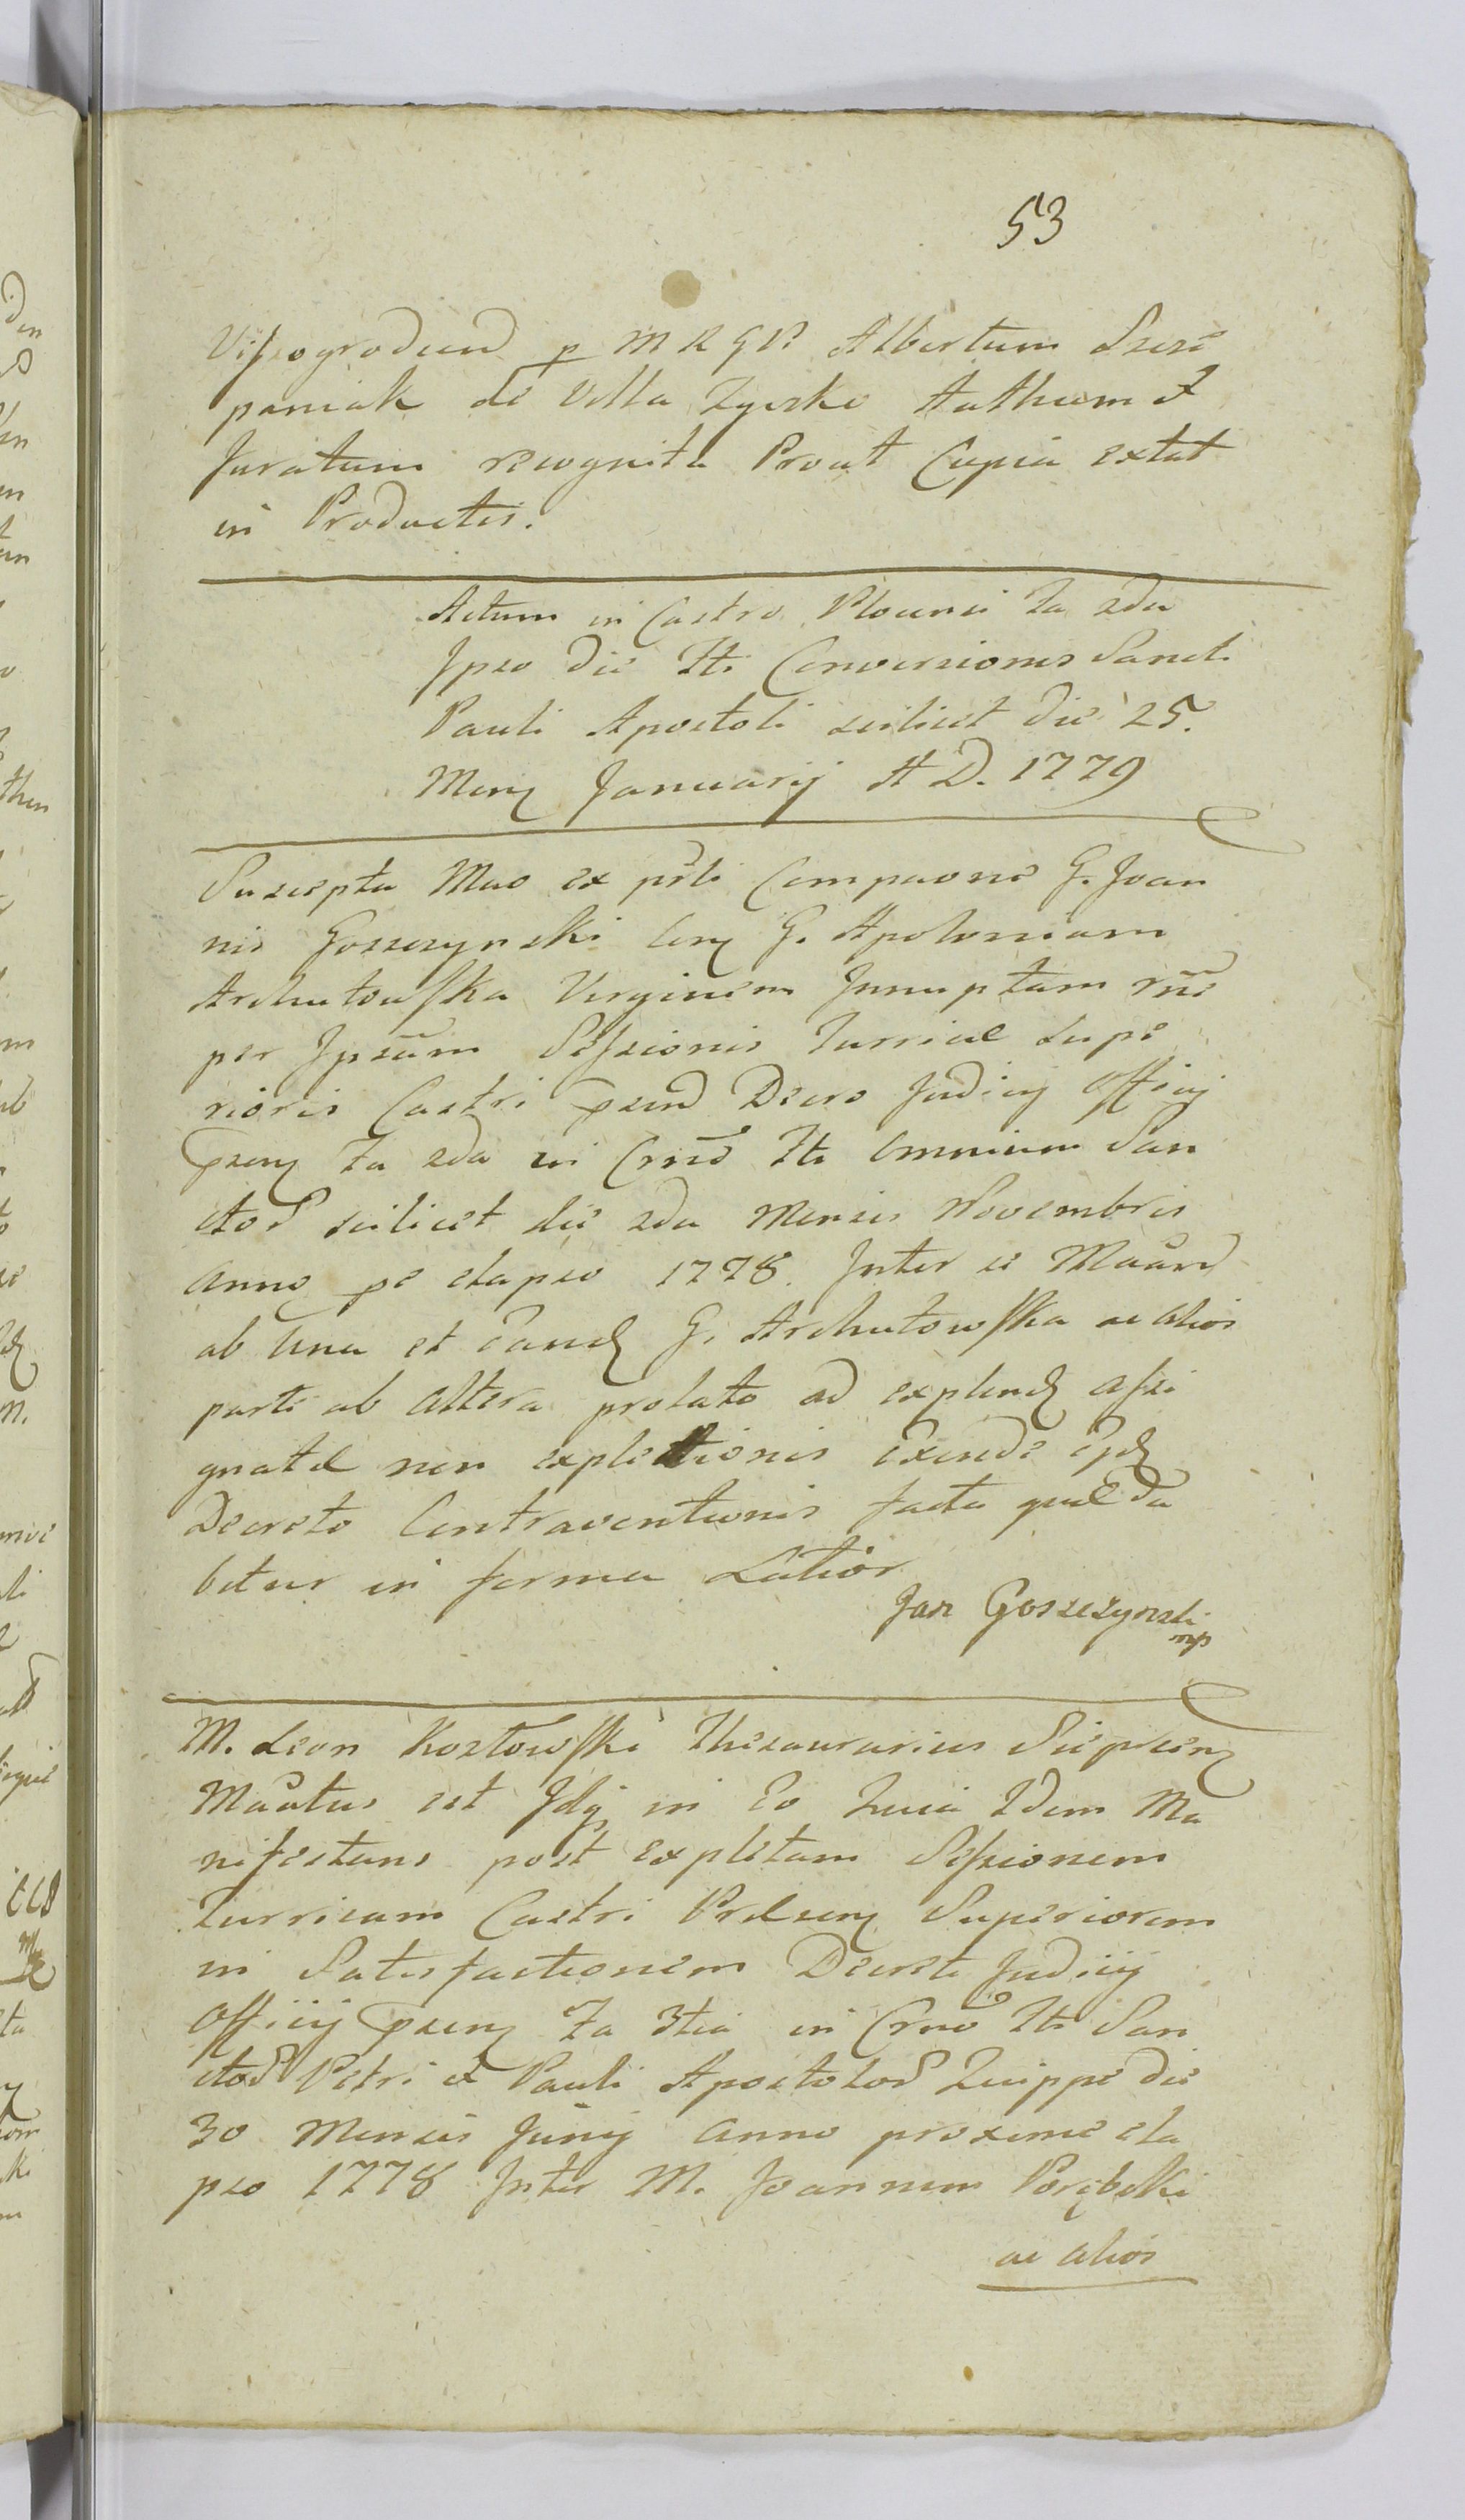 53
Vissogrodien p M R G V Albertum Szcze
paniak de Villa Zycko Authum et
Juratum recognita Prout Copia extat
in Productis.
Actum in Castro Plocensi Fa 2da
Ipso die Fti Conversionis Sancti
Pauli Apostoli scilicet die 25.
Mens Januarij A D. 1779
Suscepta Mao ex prti Compaone G. Joan
nis Goszczynski Cor G. Apoloniam
Archutowska Virginem Innuptam rne
per Ipsum Sessionis Turriae Supe
rioris Castri pnsen Decro Judicij Officij
pnsen Fa 2da in Crno Fti Omnium San
ctor scilicet die 2da Mensis Novembris
Anno pe elapso 1778. Inter se Maan
ab Una et eand G. Archutowska ac alios
parte ab Altera prolato ad explend Assi
gnatae non expletionis exinde epd
Decreto Contraventionis facta quae da
bitur in forma Latior
Jan Goszczynski
mp
M. Leon Kozlowski Thesaurarius Sieprcens
Maatus est Idq in Eo Quia Idem Ma
nifestans post Expletam Sessionem
Turrieam Castri Praesens Superiorem
in Satisfactionem Decreti Judicij
Officij pnsen Fa 3tia in Crno Fti San
ctor Petri et Pauli Apostolor Quippe die
30 Mensis Junij Anno proxime ela
pso 1778 Inter M. Joannem Porębski
ac alios